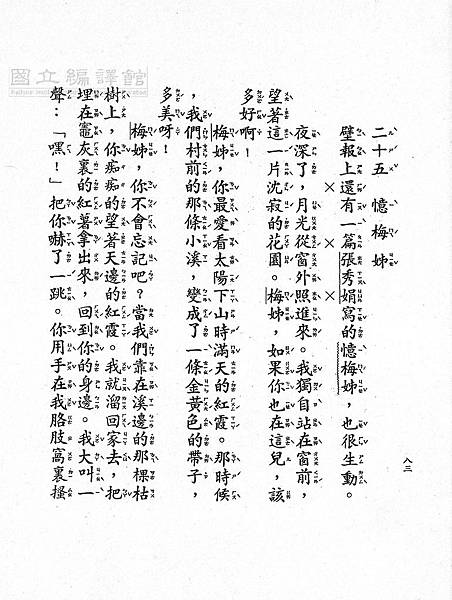 國立編譯館
二十五　憶梅姊
壁報上還有一篇張秀娟寫的憶梅姊，也很生動。
×　×　×
夜深了，月光從窗外照進來。我獨自站在窗前，
望著這一片沈寂的花園。梅姊，如果你也在這兒，該
多好啊！
梅姊，你最愛看太陽下山時滿天的紅霞。那時候
，我們村前的那條小溪，變成了一條金黃色的帶子，
多美呀！
梅姊，你不會忘記吧？當我們靠在溪邊的那棵枯
樹上，你痴痴的望著天邊的紅霞。我就溜回家去，把
埋在竈灰裏的紅薯拿出來，回到你的身邊。我大叫一
聲：「嘿！」把你嚇了一跳。你用手在我胳肢窩裏搔
八三